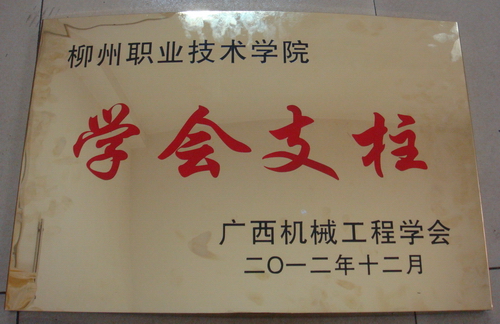 柳州职业技术学院
学会支柱
广西机械工程学会
二〇一二年十二月